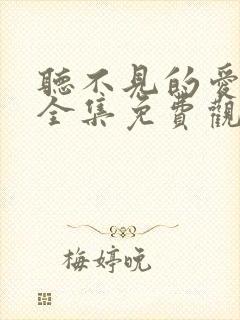 聽不見的愛
全集免費觀
梅婷晚